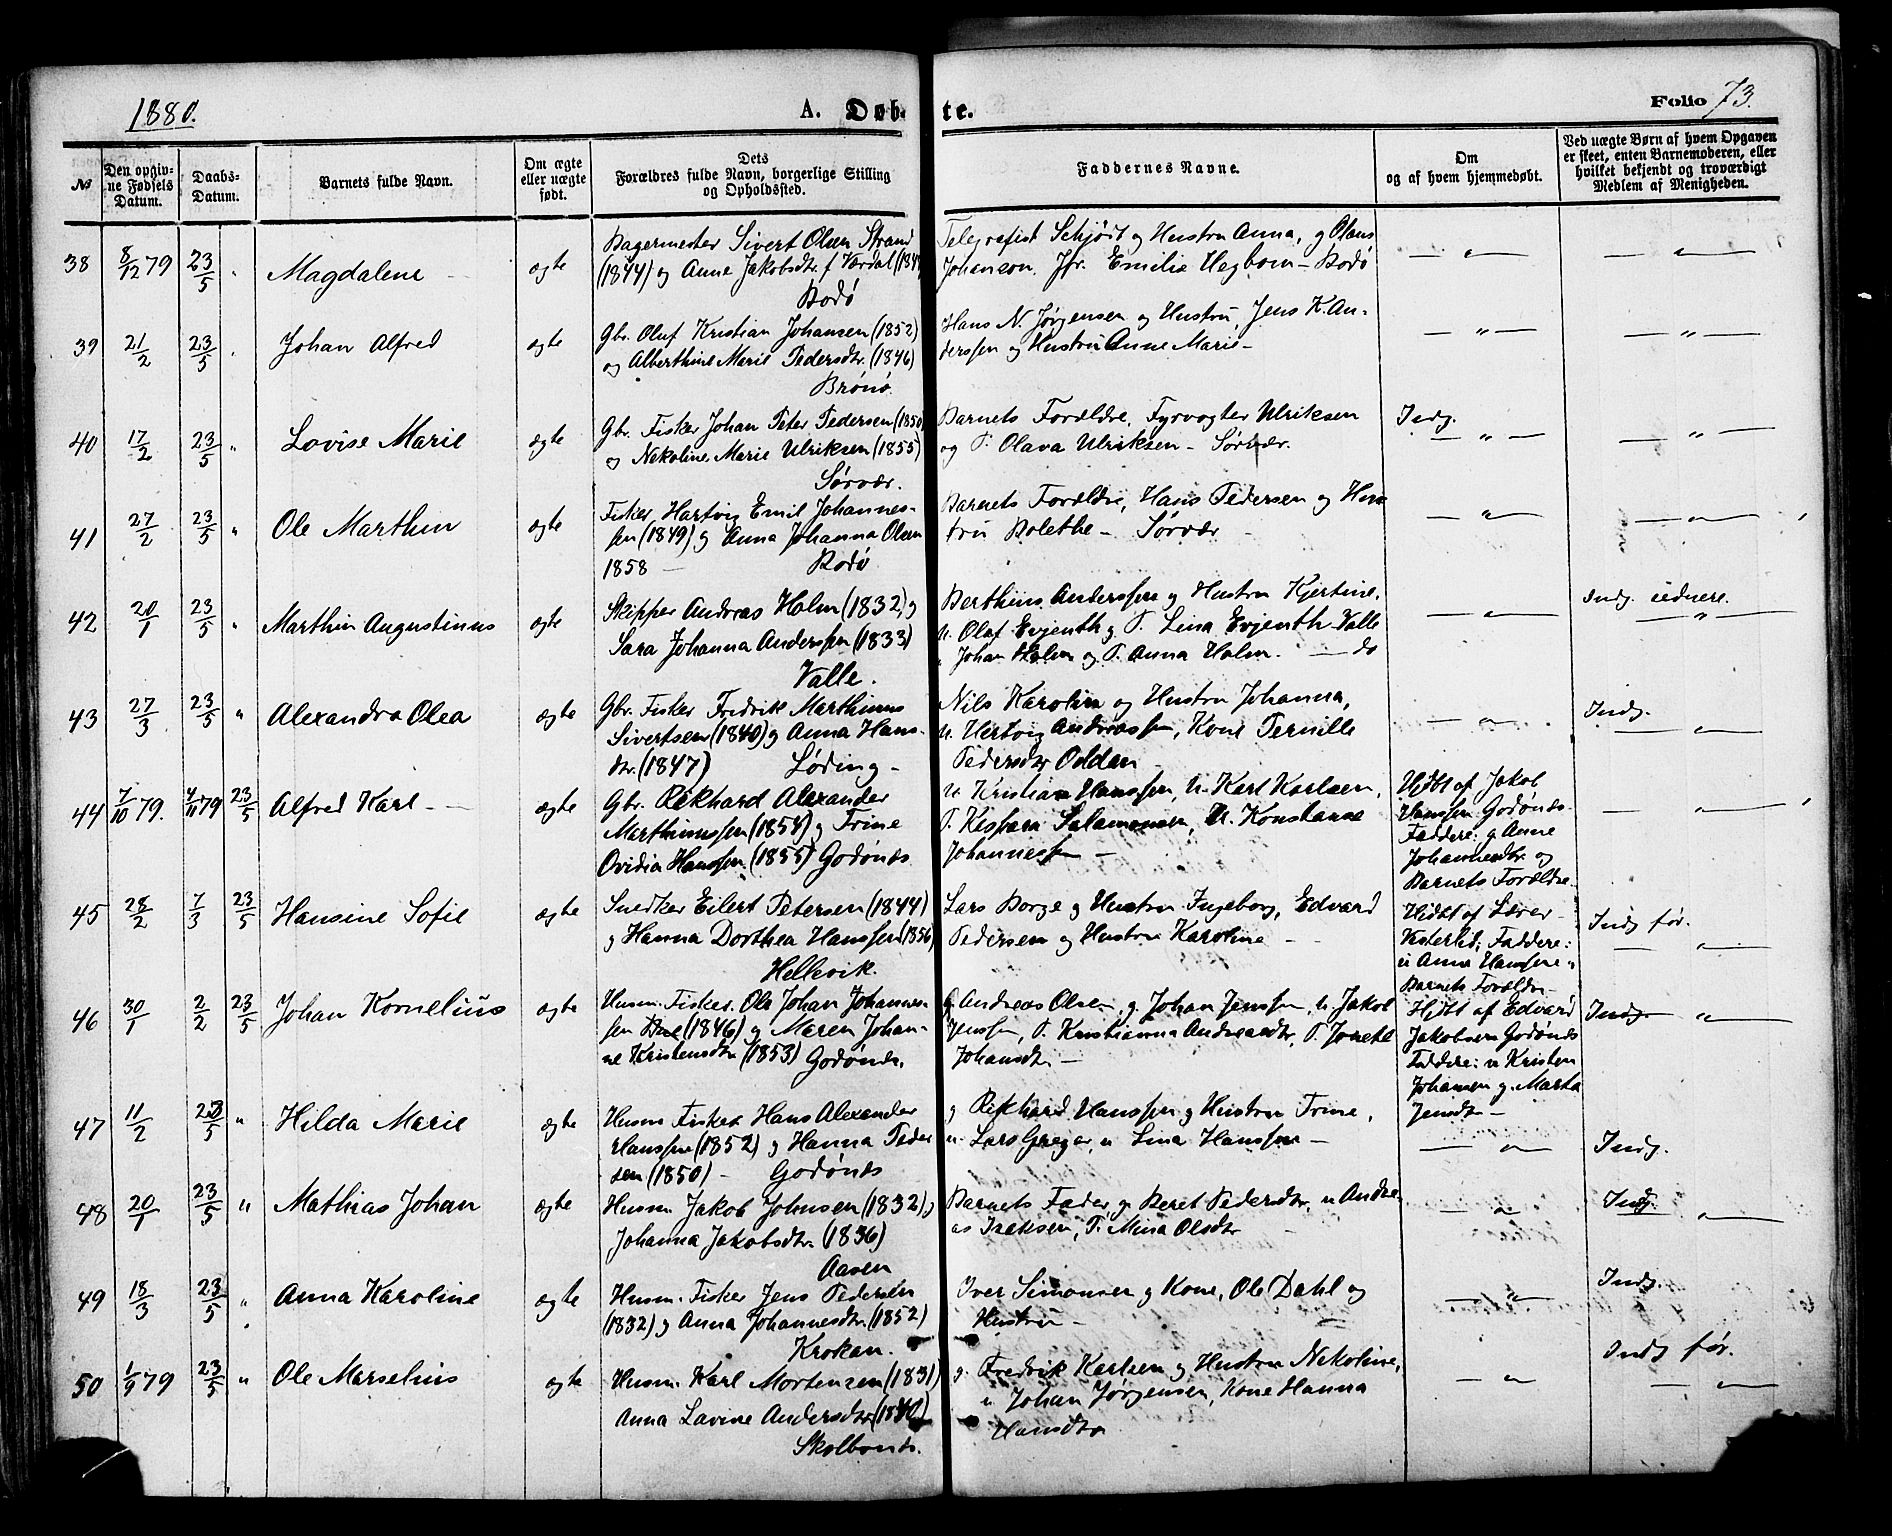 1880.
A. Døbte.
Folio 73.
№
Den opgivne Fødsels Datum.
Daabs-Datum.
Barnets fulde Navn.
Om ægte eller uægte født.
Dets Forældres fulde Navn, borgerlige Stilling og Opholdssted.
Faddernes Navne.
Om og af hvem hjemmedøbt.
Ved uægte Børn af hvem Opgaven er skeet, enten Barnemoderen, eller hvilket bekjendt og troværdigt Medlem af Menigheden.
38 8/12 79 23/5 " Magdalene ægte
Bagermester Sivert Olsen Strand
(1844) og Anne Jakobsdtr. f Værdal
Bodø
Telegrafist Schjødt og Hustru Anna, g Olaus
Johanson, Jfr. Emilie Hegbom - Bodø
— " —
— " —
39 21/2 23/5 " Johan Alfred ægte
Gbr. Oluf Kristian Johansen (1852)
og Alberthine Marie Pedersdtr. (1846)
Brønø.
Hans N. Jørgensen og Hustru, Jens K. An-
derssen og Hustru Anne Marie -
— " —
— " —
40 17/2 23/5 " Lovise Marie ægte
Gbr. Fisker Johan Peter Pedersen (1850)
og Nekoline Marie Ulriksen (1855)
Sørvær.
Barnets Forældre, Fyrvogter Ulriksen
og P. Olava Ulriksen - Sørvær.
Indg.
— " —
— " —
41 27/2 23/5 " Ole Marthin ægte
Fisker Hartvig Emil Johannes-
sen (1849) g Anna Johanna Olsen
1858 - Bodø
Barnets Forældre, Hans Pedersen og Hus
tru Bolethe - Sørvær -
— " —
— " —
42 20/1 23/5 " Marthin Augustinus ægte
Skipper Andreas Holm (1832) g
Sara Johanna Anderssen (1833)
Valle.
Berthius Anderssen g Hustru Kjertine,
u. Olaf Evjenth g P. Lina Evjenth - Valle
" Johan Holm og P. Anna Holm. — do
— " —
Indg. uidnere.
— " —
43 27/3 23/5 " Alexandra Olea ægte
Gbr. Fisker Fredrik Marthinus
Sivertsen (1840) g Anna Hans-
dtr. (1847) Løding -
Nils Karolin og Hustru Johanna,
u. Hertvig Andreassen, Kone Pernille
Pedersdtr Oddan -
— " —
Indg.
— " —
44 7/10 79. 4/11 79 23/5 Alfred Karl - ægte
Gbr. Rikhard Alexander
Marthinussen (1858) g Trine
Ovidia Hanssen (1855) Godønes
u. Kristian Hanssen, u. Karl Karlsen,
P. Kaspara Salamonsen, u. Konstanse
Johannessen -
Hjdbt af Jakob
Hanssen Godønes.
Faddere: g Anne
Johannesdtr. og
Barnets Forældre.
— " —
45 28/2 7/3 23/5 Hansine Sofie ægte
Snedker Eilert Petersen (1844)
g Hanna Dorthea Hanssen (1856)
Hellevik.
Lars Borge g Hustru Ingeborg, Edvard
Pedersen og Hustru Karoline -
Hjdbt af Lærer
Vesterlid; Faddere:
u Anna Hanssen
Barnets Forældre
Indg før.
— " —
46 30/1 2/2 23/5 Johan Kornelius ægte
Husm. Fisker. Ole Johan Johannes-
sen (1846) g Maren Johan-
ne Kristensdtr (1853) Godønes.
G. Andreas Olsen, g. Johan Jenssen, u Jakob
Jenssen, P. Kristianna Andreasdtr, P. Jonette
Johansdtr -
Hjdbt af Edvard
Jakobsen Godønes
Faddere: u Kristen
Johansen g. Marta
Jensdtr -
Indg.
— " —
47 11/2 23/5 " Hilda Marie ægte
Husm Fisker Hans Alexander
Hanssen (1852) g Hanna Peder
sen (1850) - Godønes
g Rikhard Hanssen g Hustru Trine,
u. Lars Greger, u Lina Hanssen -
— " —
Indg.
48 20/1 23/5 " Mathias Johan ægte
Husm Jakob Johnsen (1832) g
Johanna Jakobsdtr. (1836)
Aasen
Barnets Fader g Beret Pedersdtr. u Andre-
as Isaksen, P. Mina Olsdtr
— " —
Indg.
— " —
49 18/3 23/5 " Anna Karoline ægte
Husm. Fisker Jens Pedersen
(1832) g Anna Johannesdtr. (1852)
Krokan.
Iver Simonsen g Kone, Ole Dahl og
Hustru -
— " —
Indg.
50 1/9 79 23/5 " Ole Marselius ægte
Husm. Karl Mortensen (1831)
Anna Lavine Andersdtr (1840)
Skolbones.
g. Fredrik Karlsen g Hustru Nekoline,
u Johan Jørgensen, Kone Hanna
Hansdtr
— " —
Indg før.
— " —